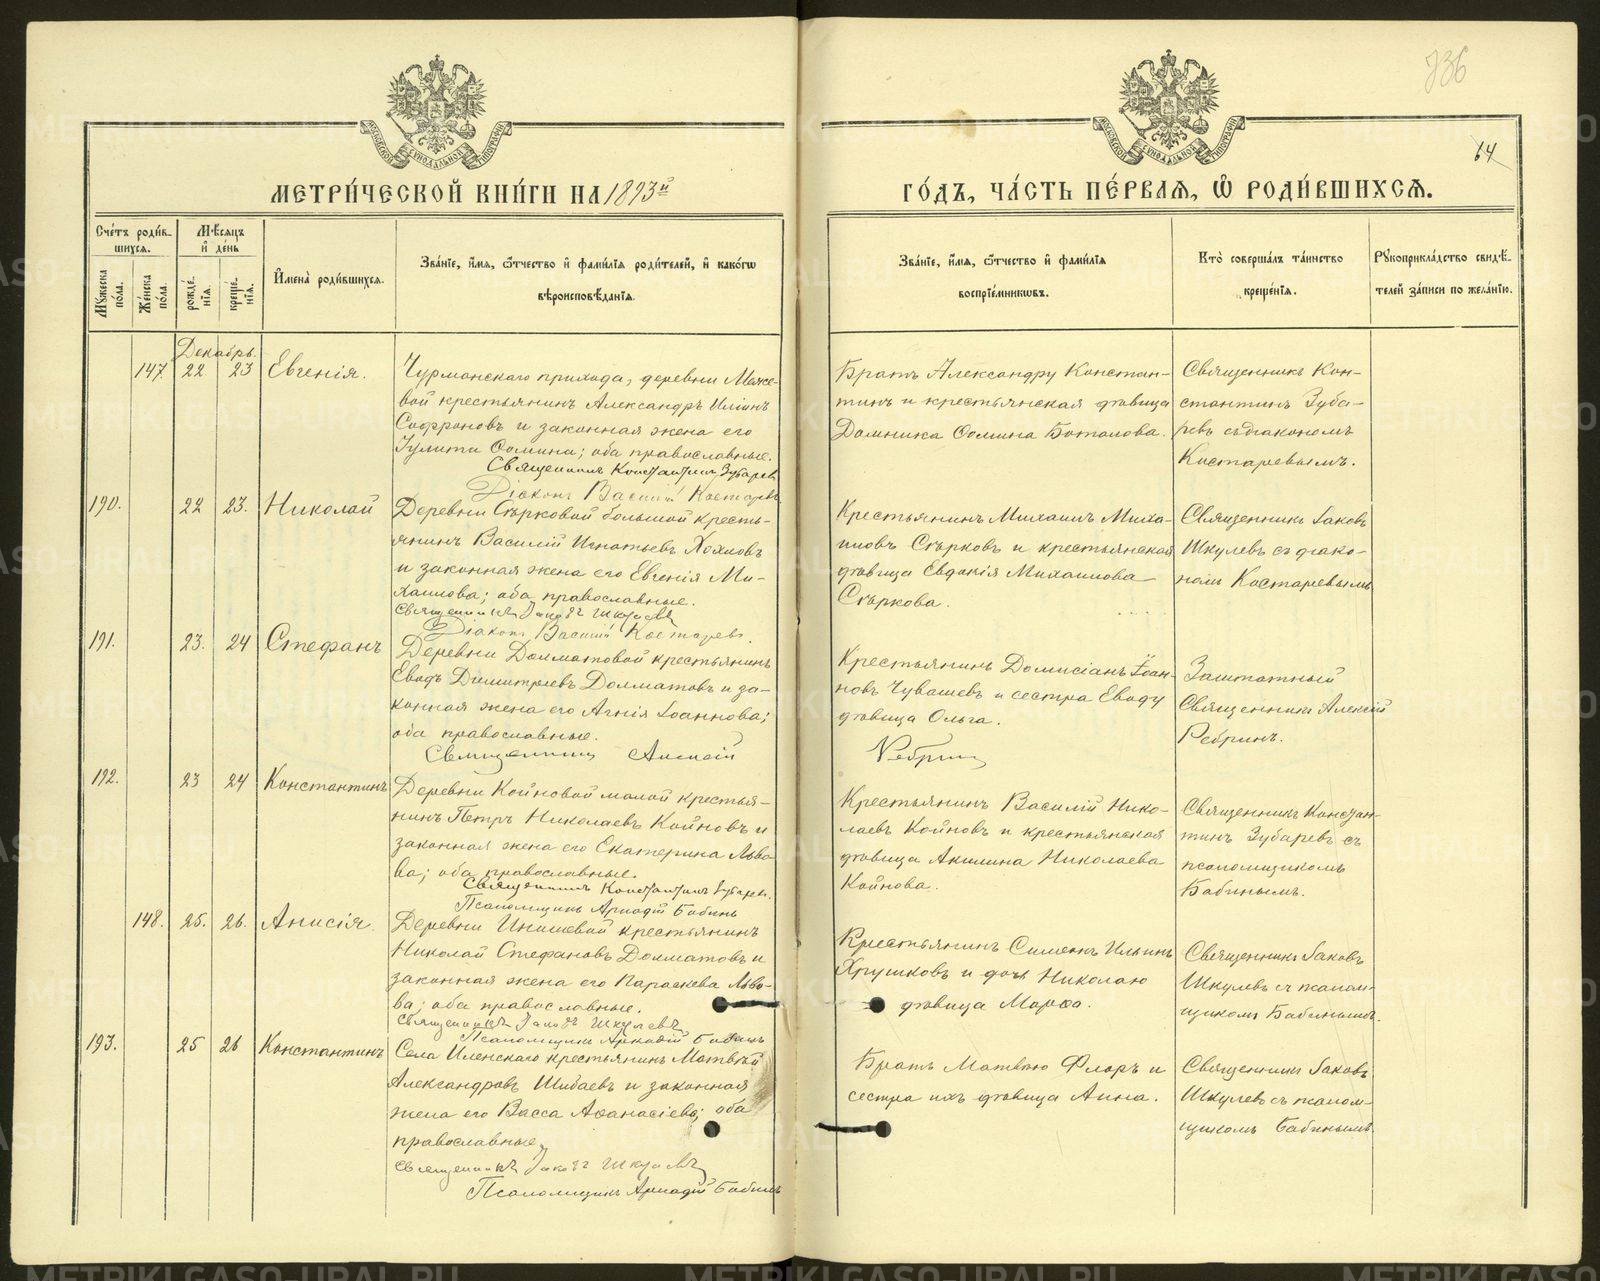 736
64
МЕТРИ́ЧЕСКОЙ КНИ́ГИ НА 1893й
ГО́ДЪ, ЧА́СТЬ ПЕ́РВАЯ, Ѿ РОДИ́ВШИХСЯ.
Сче́тъ роди́в-
шихся.
Мѣ́сяцъ
и҆ де́нь
Му́жеска
по́ла.
Же́нска
по́ла.
рожде́-
нія.
креще́-
нія.
И҆мена̀ роди́вшихся.
Зва́ніе, и҆́мя, ѻ҆́тчество и҆ фами́лія роди́телей, и҆ како́гѡ
вѣроисповѣ́данія.
Зва́ніе, и҆́мя, ѻ҆́тчество и҆ фами́лія
воспріе́мникѡвъ.
Кто̀ соверша́лъ та́инство
креще́нія.
Рꙋкоприкла́дство свидѣ́-
телей за́писи по жела́нію.
Декабрь.
147. 22 23 Евгенія.
Чурманскаго прихода, деревни Меже-
вой крестьянинъ Александръ Иліинъ
Софроновъ и законная жена его
Іулитта Ѳомина; оба православные.
Священникъ Константинъ Зубаревъ
Діаконъ Василій Костаревъ.
Братъ Александру Констан-
тинъ и крестьянская дѣвица
Домника Ѳомина Боталова.
Священникъ Кон-
стантинъ Зуба-
ревъ съ діакономъ
Костаревымъ.
190. 22 23. Николай
Деревни Сѣрковой большой кресть-
янинъ Василій Игнатьевъ Хохловъ
и законная жена его Евгенія Ми-
хаилова; оба православные.
Священникъ Іаковъ Шкулевъ
Діаконъ Василій Костаревъ.
Крестьянинъ Михаилъ Миха-
иловъ Сѣрковъ и крестьянская
дѣвица Евдокія Михаилова
Сѣркова.
Священникъ Іаковъ
Шкулевъ съ діако-
номъ Костаревымъ
191. 23. 24 Стефанъ
Деревни Долматовой крестьянинъ
Еводъ Димитріевъ Долматовъ и за-
конная жена его Агнія Іоаннова;
оба православные.
Священникъ Алексій
Ребринъ
Крестьянинъ Домисіанъ Іоан-
новъ Чувашевъ и сестра Еводу
дѣвица Ольга.
Заштатный
Священникъ Алексій
Ребринъ.
192. 23 24 Константинъ
Деревни Койновой малой крестья-
нинъ Петръ Николаевъ Койновъ и
законная жена его Екатерина Льво-
ва; оба православные.
Священникъ Константинъ Зубаревъ.
Псаломщикъ Аркадій Бабинъ
Крестьянинъ Василій Нико-
лаевъ Койновъ и крестьянская
дѣвица Акилина Николаева
Койнова.
Священникъ Констан-
тинъ Зубаревъ съ
псаломщикомъ
Бабинымъ.
148. 25. 26. Анисія.
Деревни Инишевой крестьянинъ
Николай Стефановъ Долматовъ и
законная жена его Параскева Льво-
ва; оба православные.
Священникъ Іаковъ Шкулевъ
Псаломщикъ Аркадій Бабинъ
Крестьянинъ Симеонъ Ильинъ
Хрушковъ и дочь Николаю
дѣвица Марѳа.
Священникъ Іаковъ
Шкулевъ съ псалом-
щикомъ Бабинымъ.
193. 25 26 Константинъ
Села Иленскаго крестьянинъ Матвѣй
Александровъ Шибаевъ и законная
жена его Васса Аѳанасіева; оба
православные.
Священникъ Іаковъ Шкулевъ
Псаломщикъ Аркадій Бабинъ
Братъ Матвѣю Флоръ и
сестра ихъ дѣвица Анна.
Священникъ Іаковъ
Шкулевъ съ псалом-
щикомъ Бабинымъ.
METRIKI.GASO-URAL.RU